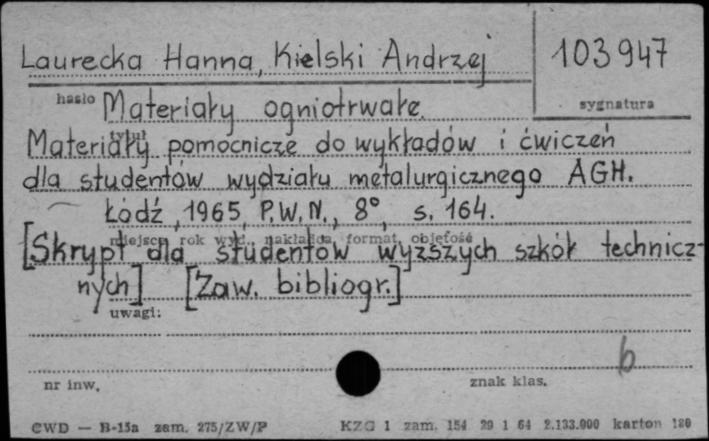 Laurecka Hanna, Kielski Andrzej
103947
hasło
sygnatura
Materiały ogniotrwałe.
tytuł
Materiały pomocnicze do wykładów i ćwiczeń
dla studentów wydziału metalurgicznego AGH.
Łódź, 1965, P.W.N., 8°, s. 164.
miejsce, rok wyd., nakładca, format, objętość
[Skrypt dla studentów wyższych szkół technicz-
nych] [Zaw. bibliogr.]
uwagi:
b
nr inw.
znak klas.
CWD — B-15a zam. 275/ZW/P
KZG 1 zam. 154 29 1 64 2.133.000 karton 180